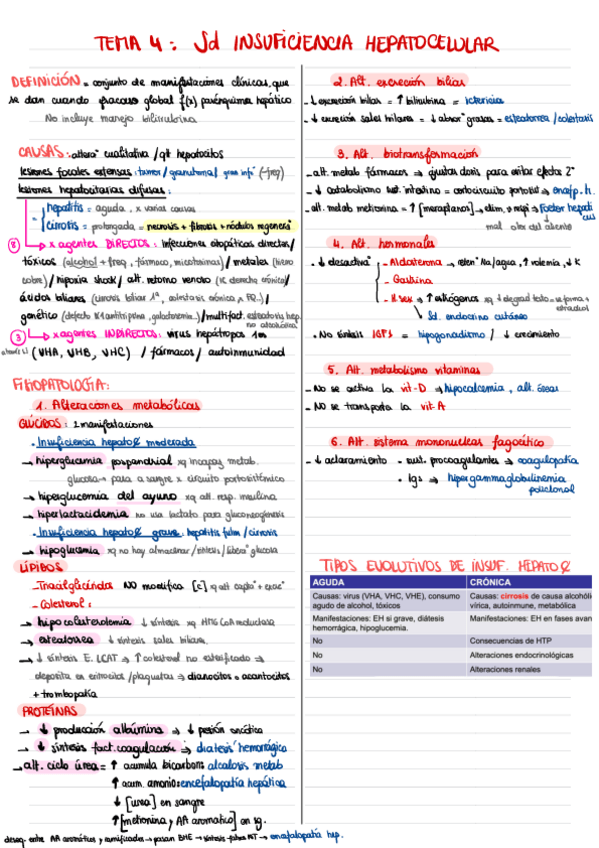 TEMA 4: Sd INSUFICIENCIA HEPATOCELULAR
DEFINICIÓN = conjunto de manifestaciones clínicas, que
se dan cuando fracaso global f(x) parénquima hepático
No incluye manejo bilirrubina
CAUSAS: alteraº cualitativa / qt hepatocitos
lesiones focales extensas: tumor/granuloma/ gran infº (-freq)
lesiones hepatocitarias difusas:
hepatitis = aguda, x varias causas
cirrosis = prolongada = necrosis + fibrosis + nódulos regeneraº
8 x agentes DIRECTOS: infecciones otopáticas directas/
tóxicos (alcohol + freq, fármaco, micotoxinas) / metales (hierro
cobre) / hipoxia shock / alt. retorno venoso (IC derecha crónica)/
ácidos biliares (cirrosis biliar 1ª, colestasis crónica, FQ..)/
genético (defecto α1 antitripsina, galactosemia..)/multifact. esteatosis hep.
no alcohólica
3 x agentes INDIRECTOS: virus hepátropos 1os
(VHA, VHB, VHC) / fármacos / autoinmunidad
FISIOPATOLOGÍA:
1. Alteraciones metabólicas
GLÚCIDOS: 2 manifestaciones
· Insuficiencia hepatoȼ moderada
→ hiperglucemia pospandrial xq incapaz metab.
glucosa → pasa a sangre x circuito portosistémico
→ hiperglucemia del ayuno xq alt. resp. insulina
→ hiperlactacidemia no usa lactato para gluconeogénesis
- Insuficiencia hepatoȼ grave: hepatitis fulm / cirrosis
→ hipoglucemia xq no hay almacenar/síntesis/liberaº glucosa
LÍPIDOS
- Triacilglicéridos NO modifica [c] xq alt captaº + excrº
- Colesterol:
→ hipocolesterolemia ↓ síntesis xq HMG CoA reductasa
→ esteatorrea ↓ síntesis sales biliares
→ ↓ síntesis E. LCAT → ↑ colesterol no esterificado ⇒
deposita en eritrocitos/plaquetas ⇒ dianocitos o acantocitos
+ trombopatía
PROTEÍNAS
→ ↓ producción albúmina ⇒ ↓ presión oncótica
→ ↓ síntesis fact. coagulación ⇒ diátesis hemorrágica
→ alt. ciclo úrea = ↑ acumula bicarbon: alcalosis metab
↑ acum. amonio: encefalopatía hepática
↓ [urea] en sangre
↑ [metionina y AA aromático] en sg.
deseq. entre AA aromáticos y ramificados → pasan BHE → síntesis falsos NT → encefalopatía hep.
2. Alt. excreción bilis
- ↓ excreción bilis = ↑ bilirrubina = ictericia
- ↓ excreción sales biliares = ↓ absorº grasas = esteatorrea / colestasis
3. Alt. biotransformación
- alt. metab fármacos ⇒ ajustar dosis para evitar efectos 2º
- ↓ catabolismo sust. intestino = cortocircuito portosist ⇒ encef. h.
- alt. metab metionina = ↑ [mercaptanos] → elim. x respi ⇒ Foetor hepáti
cus
mal olor del aliento
4. Alt. hormonales
- ↓ desactivaº - Aldosterona → retenº Na/agua, ↑ volemia, ↓K
- Gastrina
- H. sex → ↑ estrógenos xq ↓ degrad testo → se forma +
estradiol
Sd. endocrino cutáneo
· No síntesis IGFs = hipogonadismo / ↓ crecimiento
5. Alt. metabolismo vitaminas
- No se activa la vit-D ⇒ hipocalcemia, alt. óseas
- No se transporta la vit-A
6. Alt. sistema mononuclear fagocítico
- ↓ aclaramiento · sust. procoagulantes ⇒ coagulopatía
· Igs ⇒ hipergammaglobulinemia
policlonal
TIPOS EVOLUTIVOS DE INSUF. HEPATOȼ
AGUDA CRÓNICA
Causas: virus (VHA, VHC, VHE), consumo Causas: cirrosis de causa alcohóli
agudo de alcohol, tóxicos vírica, autoinmune, metabólica
Manifestaciones: EH si grave, diátesis Manifestaciones: EH en fases avan
hemorrágica, hipoglucemia.
No Consecuencias de HTP
No Alteraciones endocrinológicas
No Alteraciones renales